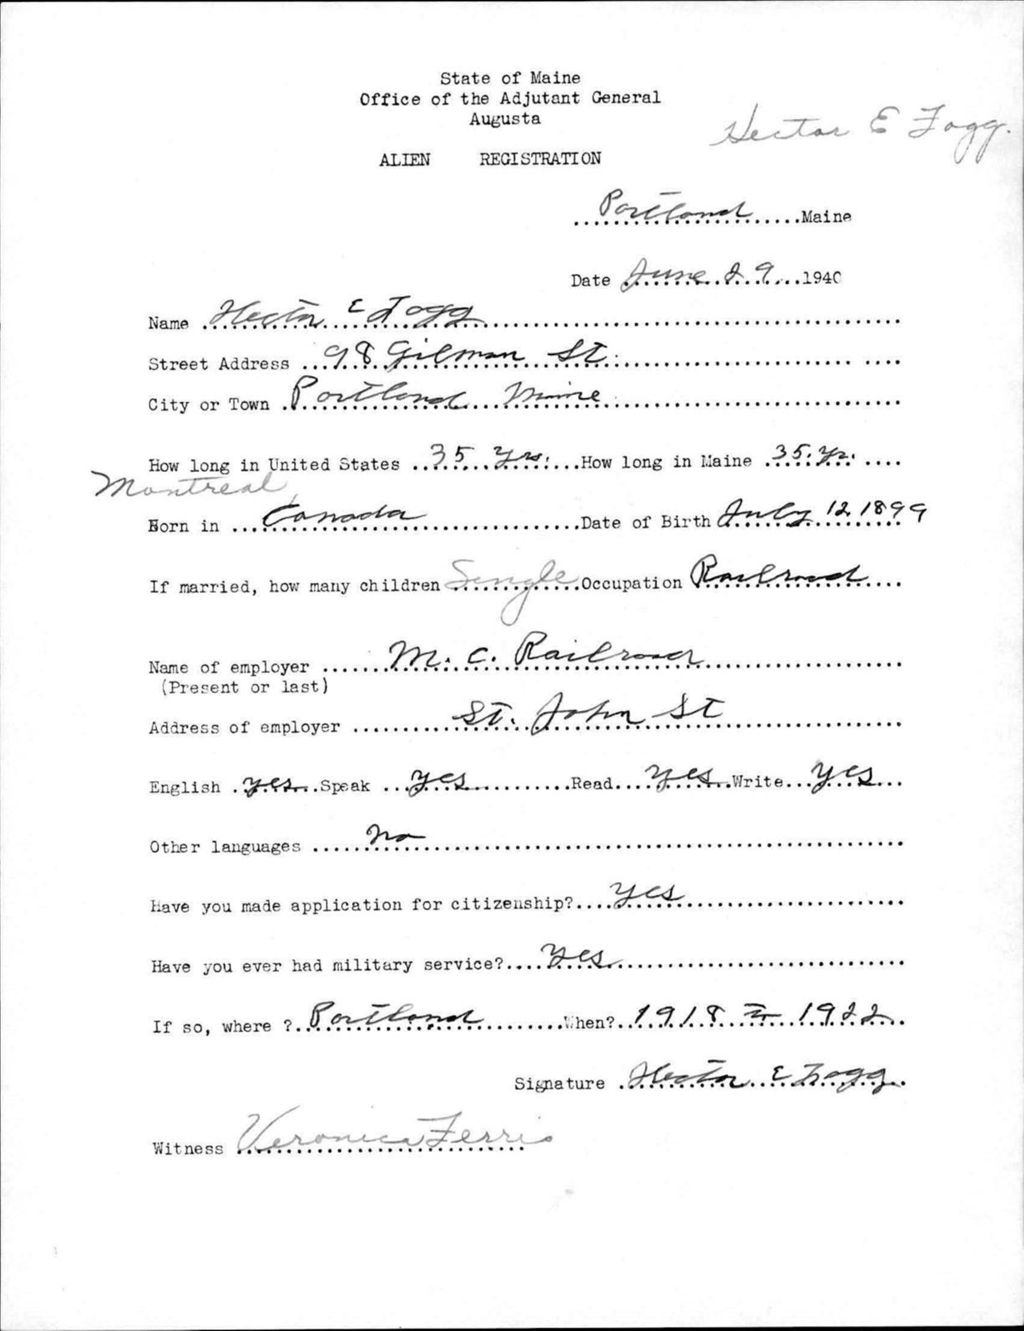 State of Maine
Office of the Adjutant General
Augusta
Hector E Fogg.
ALIEN REGISTRATION
Portland Maine
Date June 29 1940
Name Hector E Fogg
Street Address 98 Gilman St.
City or Town Portland Maine
How long in United States 35 Yrs. How long in Maine 35 Yr.
Montreal,
Born in Canada Date of Birth July 12, 1899
If married, how many children Single Occupation Railroad
Name of employer M. C. Railroad
(Present or last)
Address of employer St. John St
English yes Speak yes Read yes Write yes
Other languages no
Have you made application for citizenship? yes
Have you ever had military service? yes
If so, where ? Portland When? 1918 to 1922
Signature Hector E Fogg
Witness Veronica Ferris